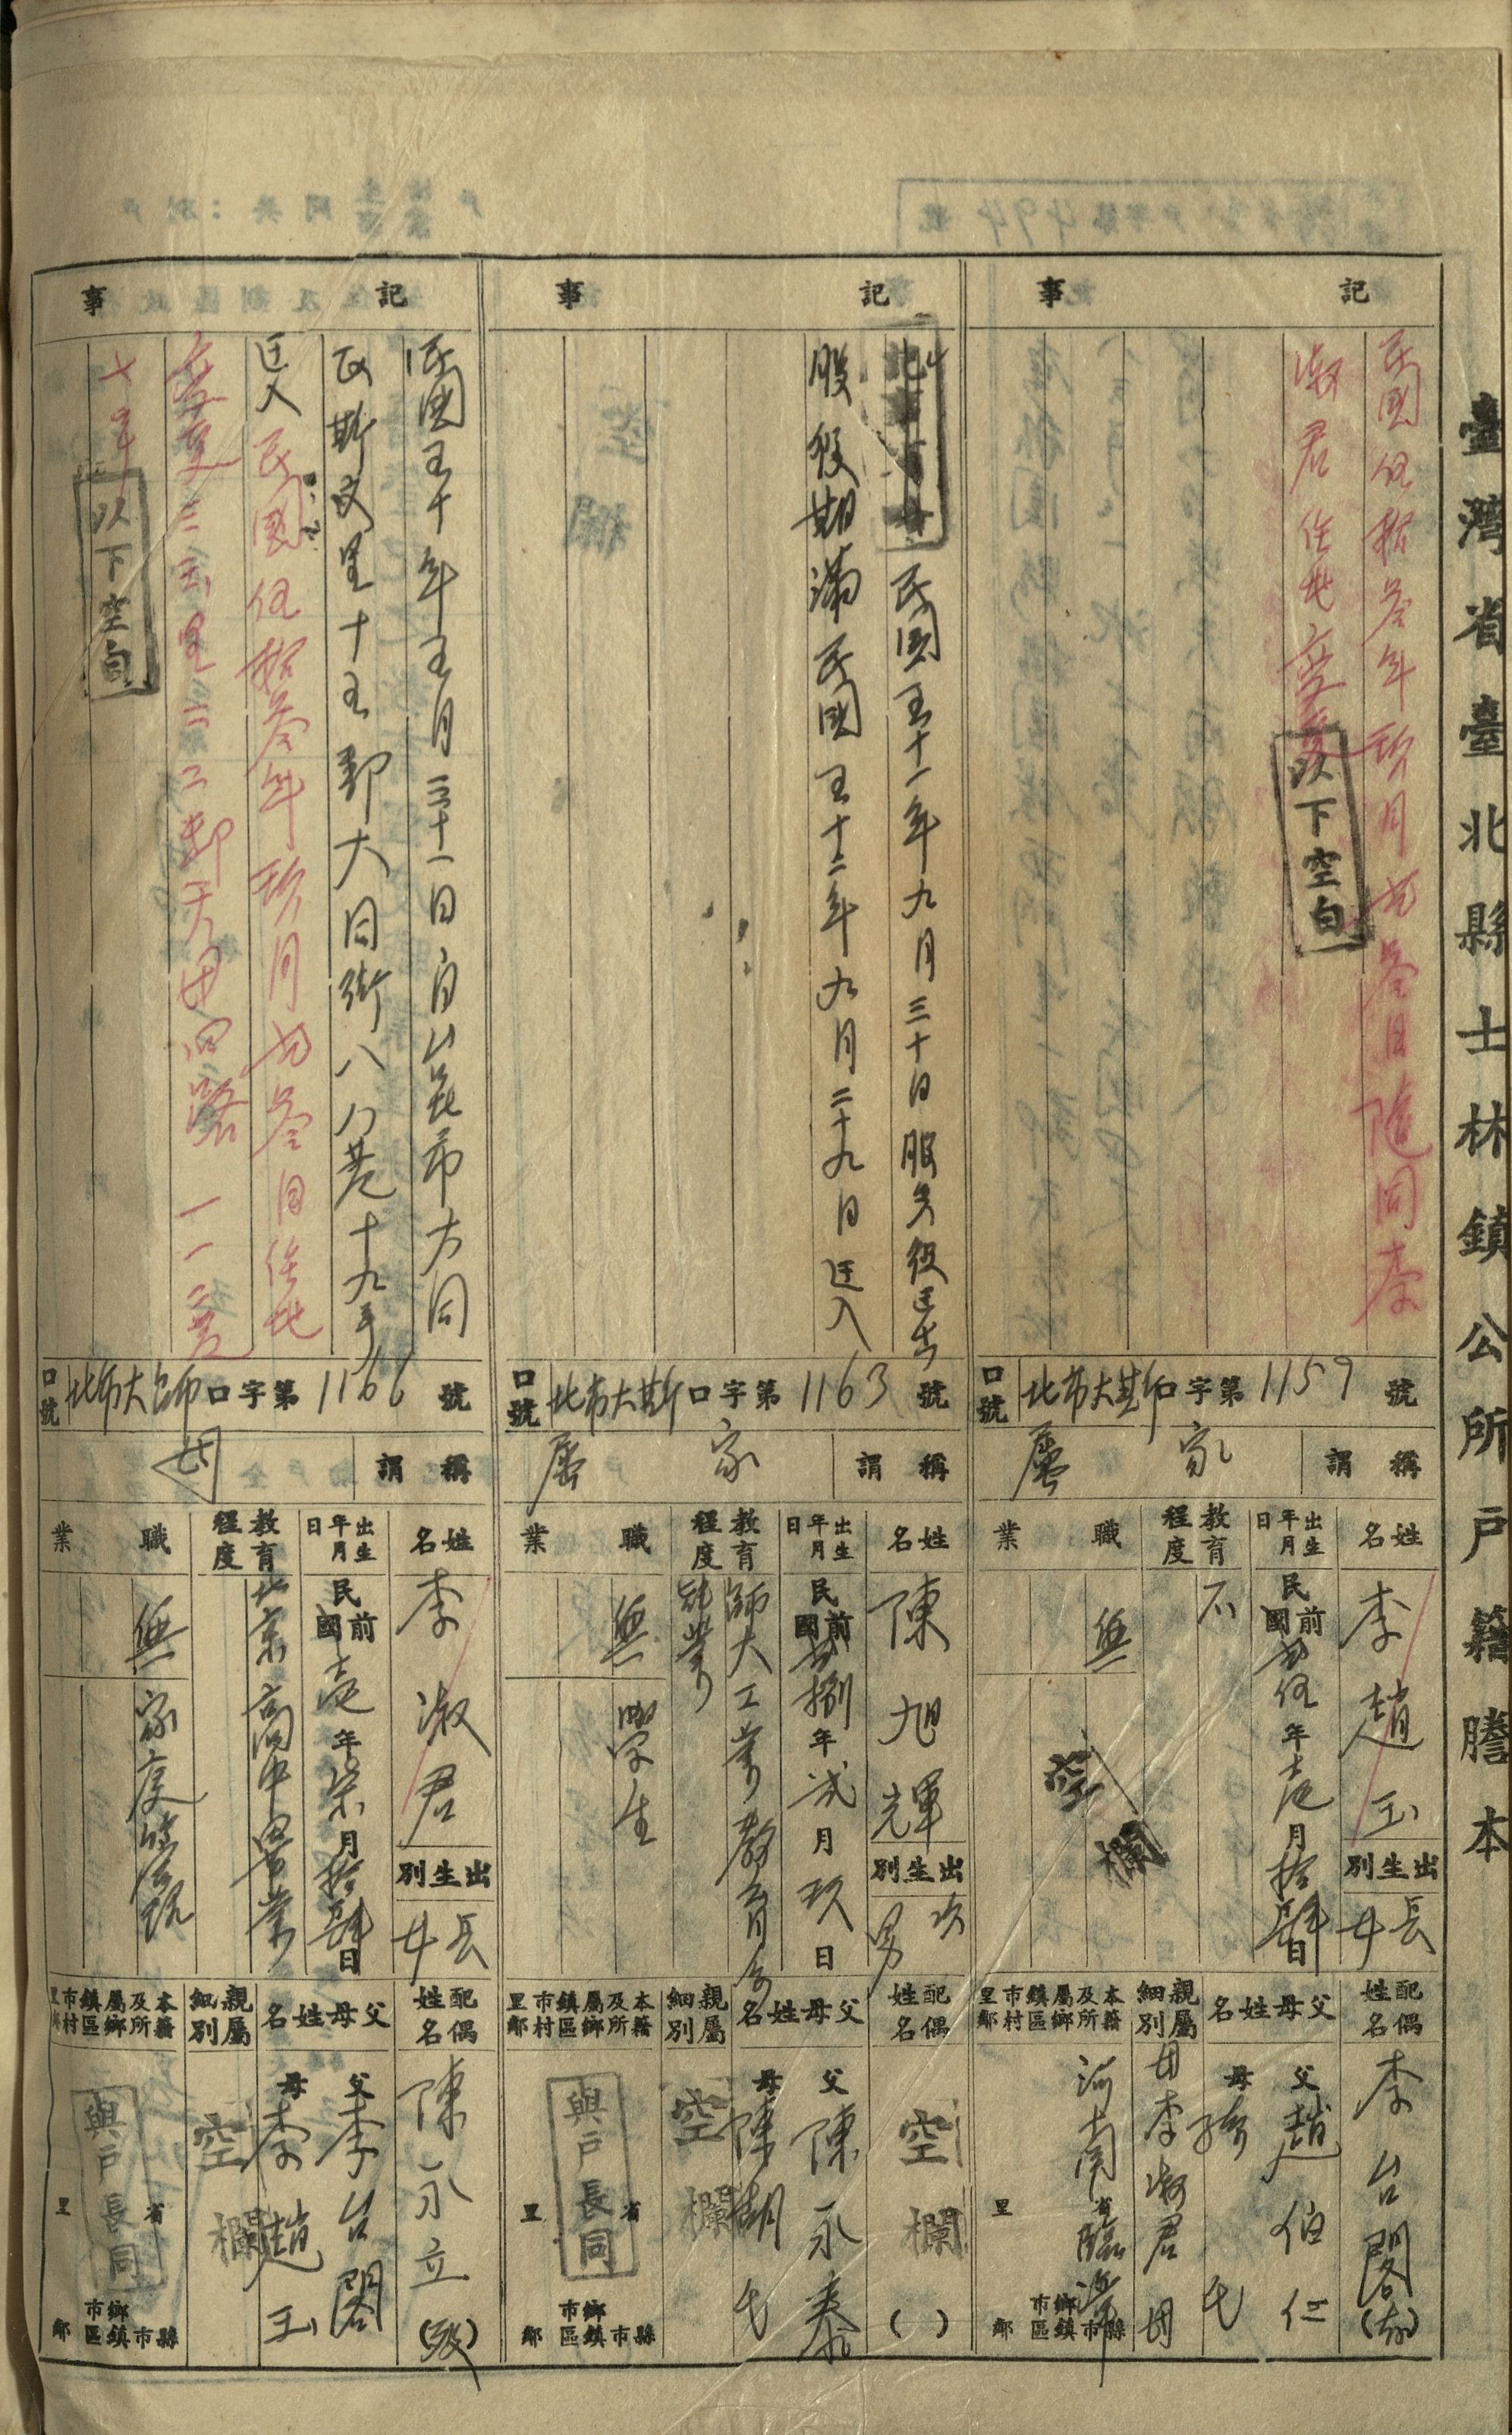 臺灣省臺北縣士林鎮公所戶籍謄本
記事
民國伍拾叁年玖月廿叁日隨同李
淑君住址變更
以下空白
口號 北市大斯口字第1159號
稱謂 家屬
姓名 李趙玉
出生別 長女
出生年月日 民國前廿伍年壱月拾肆日
教育程度 不
職業 無
空欄
配偶姓名 李台閣
父母姓名 父 趙伯仁
母 氏
親屬細別 母李淑君母
本籍及所屬鄉鎮區市村里鄰 河南省臨漳縣市 鄉鎮市區 里 鄰
記事
民國五十一年九月三十日服兵役迁出
服役期滿民國五十二年九月二十九日迁入
空欄
口號 北市大斯口字第1163號
稱謂 家屬
姓名 陳旭輝
出生別 次男
出生年月日 民國廿捌年弍月玖日
教育程度 師大工業教育系
肄業
職業 無
學生
配偶姓名 空欄( )
父母姓名 父 陳永泰
母 陳胡氏
親屬細別 空欄
本籍及所屬鄉鎮區市村里鄰 與戶長同 省 縣市 鄉鎮市區 里 鄰
記事
民國五十年五月三十一日自台北市大同
區斯文里十五鄰大同街八八巷十九号
迁入民國伍拾叁年玖月廿叁日住址
變更三玉里二二鄰天母四路一一二巷
七号
以下空白
口號 北市大斯口字第1166號
稱謂 母
姓名 李淑君
出生別 長女
出生年月日 民國前壱年柒月拾肆日
教育程度 北京高中畢業
職業 無
家庭管理
配偶姓名 陳永立(歿)
父母姓名 父 李台閣
母 李趙玉
親屬細別 空欄
本籍及所屬鄉鎮區市村里鄰 與戶長同 省 縣市 鄉鎮市區 里 鄰